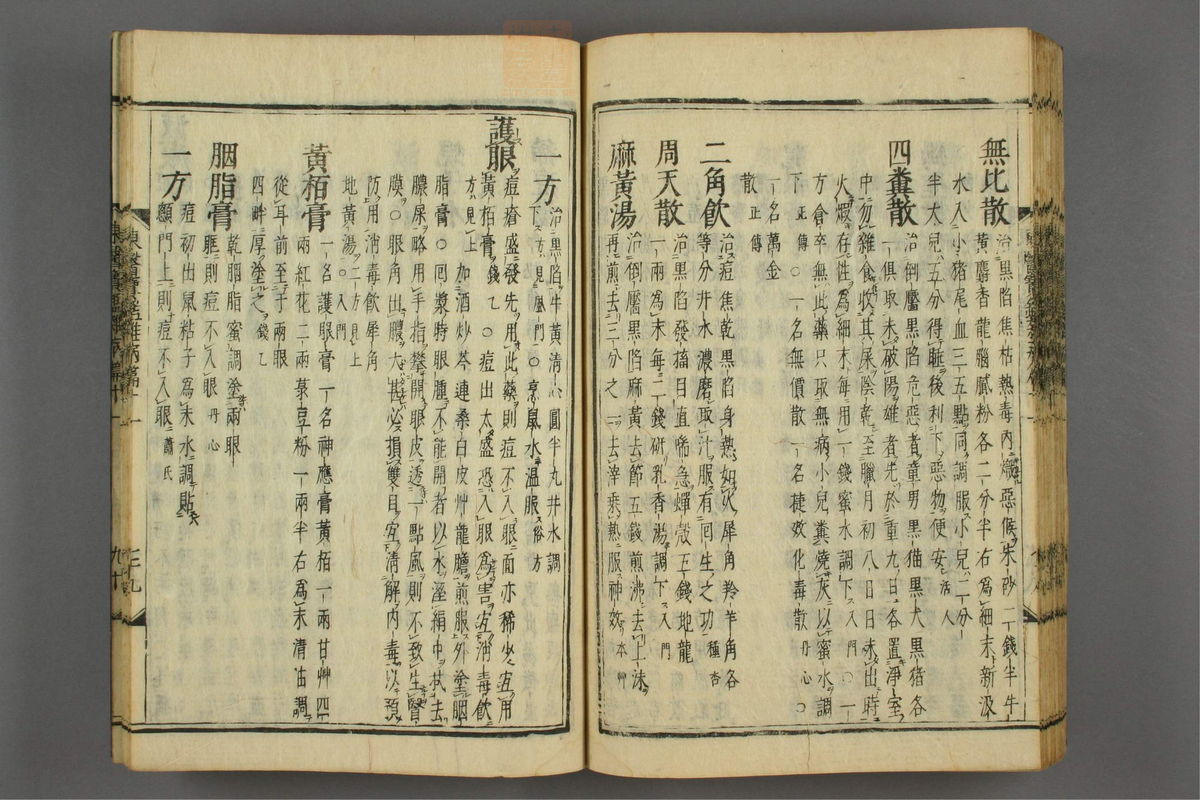 無比散 治黒陷焦枯熱毒内熾惡候朱砂一錢半牛
黄麝香龍腦膩粉各二分半右爲細末新汲
水入小猪尾血三五點同調服小兒二分
半大兒五分得睡後利下惡物便安 活人
四糞散 治倒靨黒陷危惡者童男黒猫黒犬黒猪各
一俱取未破陽雄者先於重九日各置淨室
中勿雜食收其屎陰乾至臘月初八日日未出時
火煆存性爲細末每用一錢蜜水調下 入門 ○一
方倉卒無此藥只取無病小兒糞燒灰以蜜水調
下 正傳 ○一名無價散一名捷效化毒散 丹心 ○
一名萬金
散 正傳
二角飲 治痘焦乾黒陷身熱如火犀角羚羊角各
等分井水濃磨取汁服有回生之功 種杏
周天散 治黒陷發搐目直喘急蟬殼五錢地龍
一兩爲末每二錢研乳香湯調下 入門
麻黄湯 治倒靨黒陷麻黄去節五錢煎沸去上沫
再煎去三分之一去滓乘熱服神效 本艸
一方 治黒陷牛黄清心圓半丸井水調
下 方見風門 ○烹鼠水温服 俗方
護眼 痘瘡盛發先用此藥則痘不入眼面亦稀少宜用
黄栢膏 錢乙 ○痘出太盛恐入眼爲害宜消毒飲
方見上 加酒炒芩連桑白皮艸龍膽煎服外塗胭
脂膏○回漿時眼腫不能開者以水溼絹巾拭去
膿屎略用手指攀開眼皮透一點風則不致生瞖
膜○眼角出膿大甚必損雙目宜清解内毒以預
防用消毒飲犀角
地黄湯 二方見上 ○入門
黄栢膏 一名護眼膏一名神應膏黄栢一兩甘艸四
兩紅花二兩菉豆粉一兩半右爲末清油調
從耳前至于兩眼
四畔厚塗之 錢乙
胭脂膏 乾胭脂蜜調塗兩眼
眶則痘不入眼 丹心
一方 痘初出鼠粘子爲末水調貼
顖門上則痘不入眼 蕭氏